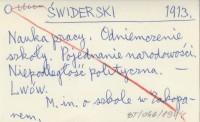 ŚWIDERSKI 1913.
Nauka pracy. Odniemczenie
szkoły. Pojednanie narodowości.
Niepodległość polityczna. —
Lwów.
M. in. o szkole w Zakopa-
nem.